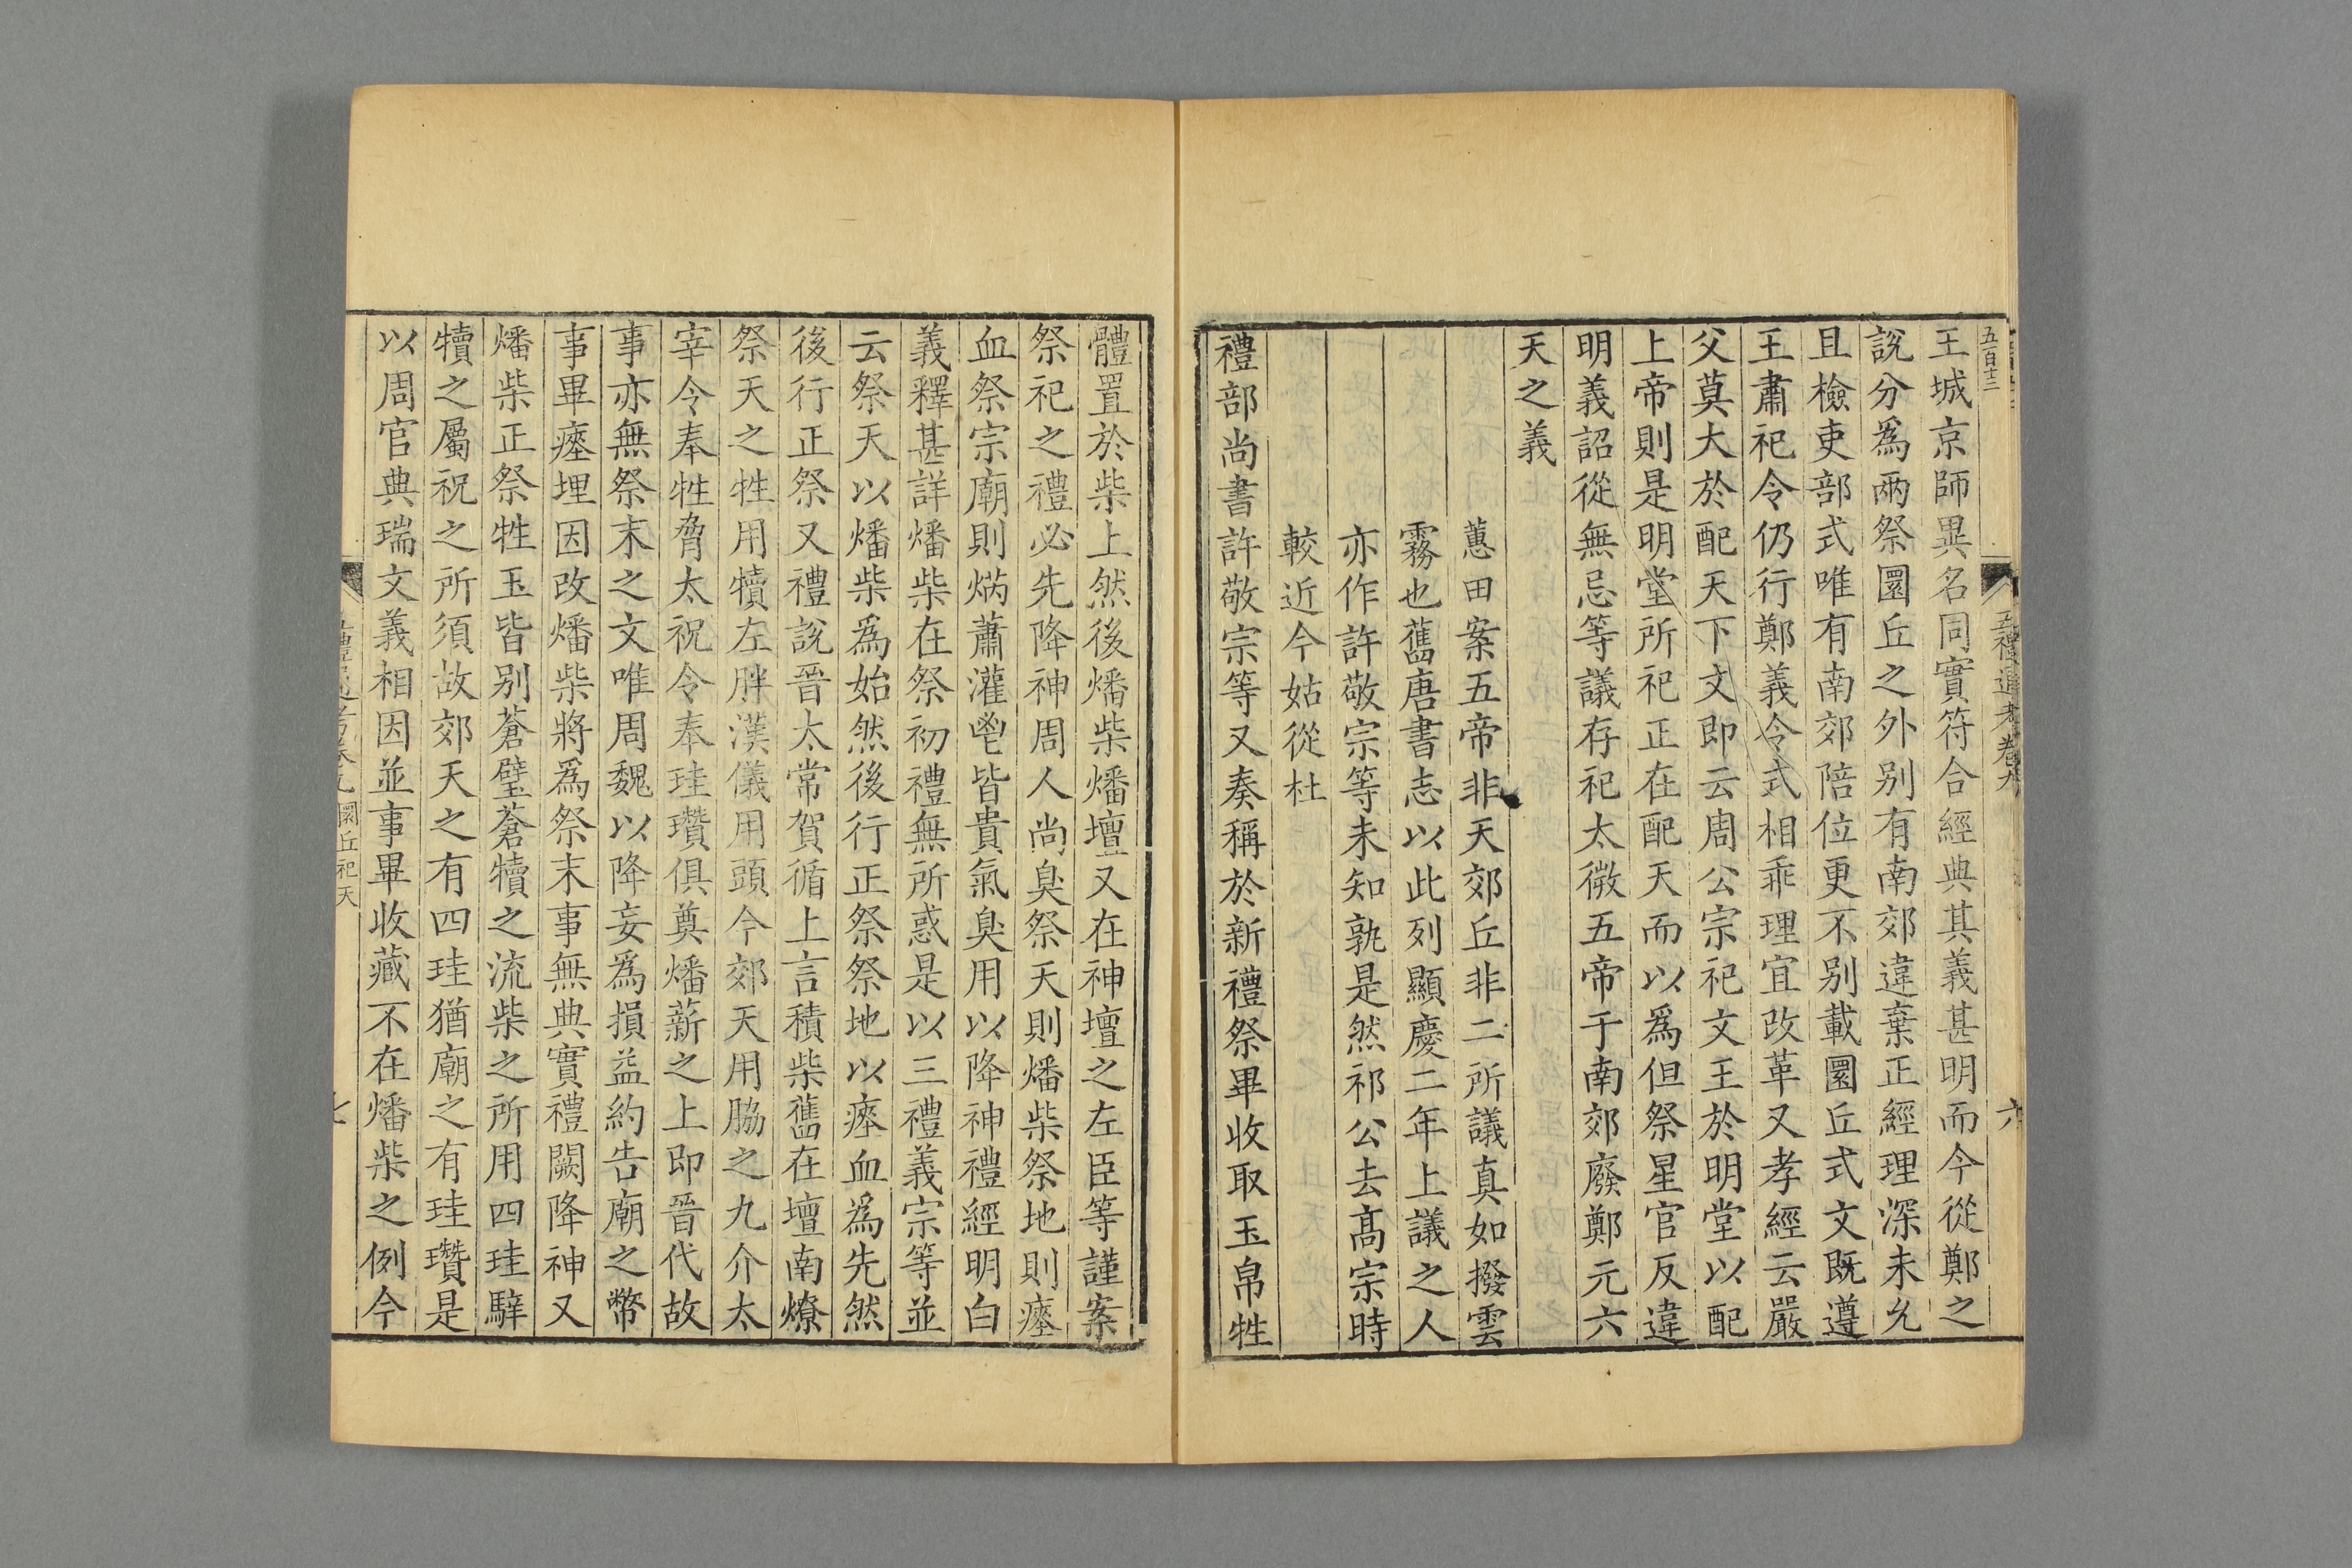 五百十三
五禮通考卷九
六
王城京師異名同實符合經典其義甚明而今從鄭之
說分爲兩祭圜丘之外别有南郊違棄正經理深未允
且檢吏部式唯有南郊陪位更不别載圜丘式文既遵
王肅祀令仍行鄭義令式相乖理宜改革又孝經云嚴
父莫大於配天下文即云周公宗祀文王於明堂以配
上帝則是明堂所祀正在配天而以爲但祭星官反違
明義詔從無忌等議存祀太微五帝于南郊廢鄭元六
天之義
蕙田案五帝非天郊丘非二所議真如撥雲
霧也舊唐書志以此列顯慶二年上議之人
亦作許敬宗等未知孰是然祁公去高宗時
較近今姑從杜
禮部尚書許敬宗等又奏稱於新禮祭畢收取玉帛牲
體置於柴上然後燔柴燔壇又在神壇之左臣等謹案
祭祀之禮必先降神周人尚臭祭天則燔柴祭地則瘞
血祭宗廟則焫蕭灌鬯皆貴氣臭用以降神禮經明白
義釋甚詳燔柴在祭初禮無所惑是以三禮義宗等並
云祭天以燔柴爲始然後行正祭祭地以瘞血爲先然
後行正祭又禮說晉太常賀循上言積柴舊在壇南燎
祭天之牲用犢左胖漢儀用頭今郊天用脇之九介太
宰令奉牲脅太祝令奉珪瓚俱奠燔薪之上即晉代故
事亦無祭末之文唯周魏以降妄爲損益約告廟之幣
事畢瘞埋因改燔柴將爲祭末事無典實禮闕降神又
燔柴正祭牲玉皆别蒼璧蒼犢之流柴之所用四珪騂
犢之屬祝之所須故郊天之有四珪猶廟之有珪瓚是
以周官典瑞文義相因並事畢收藏不在燔柴之例今
圜丘祀天
七